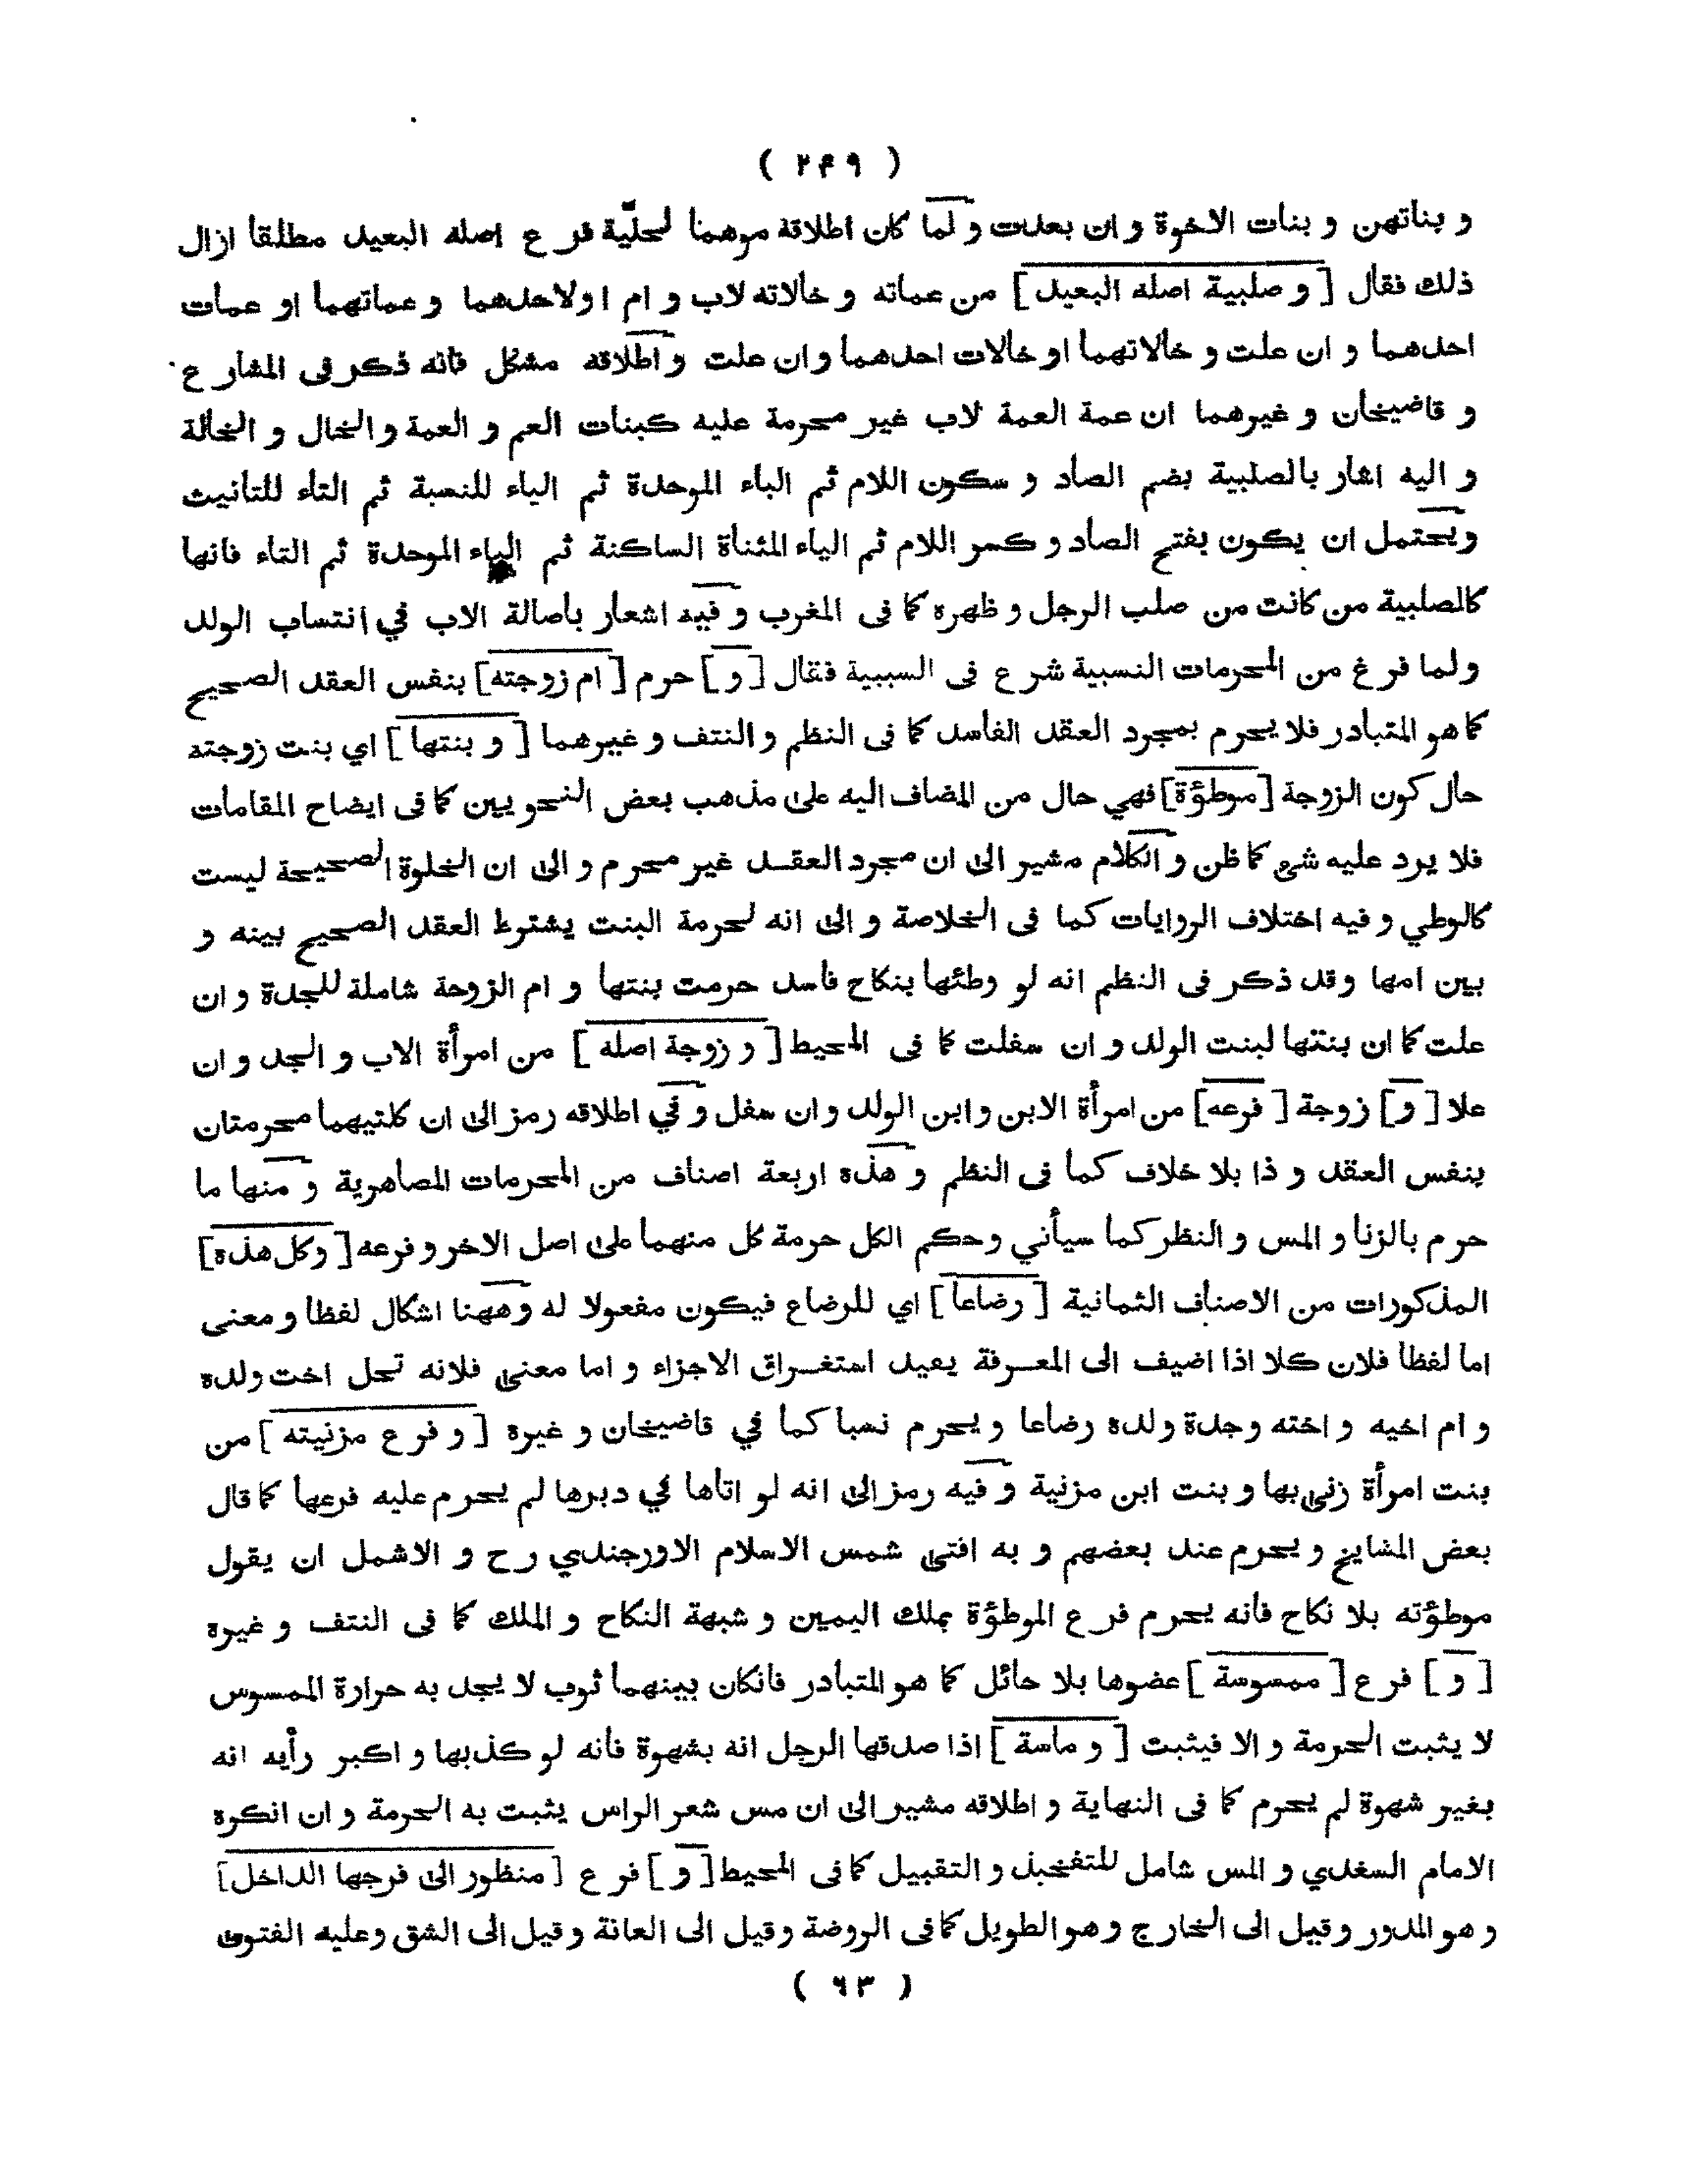 ( ٢٤٩ )
و بناتهن و بنات الاخوة و ان بعدت و لما كان اطلاقه موهما لحلّية فرع اصله البعيد مطلقا ازال
ذلك فقال [ و صلبية اصله البعيد ] من عماته و خالاته لاب و ام اولاحدهما و عماتهما او عمات
احدهما و ان علت و خالاتهما او خالات احدهما و ان علت و اطلاقه مشكل فانه ذكر فى المشارع
و قاضيخان و غيرهما ان عمة العمة لاب غير محرمة عليه كبنات العم و العمة و الخال و الخالة
و اليه اشار بالصلبية بضم الصاد و سكون اللام ثم الباء الموحدة ثم الياء للنسبة ثم التاء للتانيث
و يحتمل ان يكون بفتح الصاد و كسر اللام ثم الياء المثناة الساكنة ثم الباء الموحدة ثم التاء فانها
كالصلبية من كانت من صلب الرجل و ظهره كما فى المغرب و فيه اشعار باصالة الاب في انتساب الولد
ولما فرغ من المحرمات النسبية شرع فى السببية فقال [ و ] حرم [ ام زوجته ] بنفس العقد الصحيح
كما هو المتبادر فلا يحرم بمجرد العقد الفاسد كما فى النظم و النتف و غيرهما [ و بنتها ] اي بنت زوجته
حال كون الزوجة [ موطؤة ] فهي حال من المضاف اليه على مذهب بعض النحويين كما فى ايضاح المقامات
فلا يرد عليه شئ كما ظن و الكلام مشير الى ان مجرد العقد غير محرم و الى ان الخلوة الصحيحة ليست
كالوطي و فيه اختلاف الروايات كما فى الخلاصة و الى انه لحرمة البنت يشترط العقد الصحيح بينه و
بين امها وقد ذكر فى النظم انه لو وطئها بنكاح فاسد حرمت بنتها و ام الزوجة شاملة للجدة و ان
علت كما ان بنتها لبنت الولد و ان سفلت كما فى المحيط [ و زوجة اصله ] من امرأة الاب و الجد و ان
علا [ و ] زوجة [ فرعه ] من امرأة الابن و ابن الولد و ان سفل و في اطلاقه رمز الى ان كلتيهما محرمتان
بنفس العقد و ذا بلا خلاف كما فى النظم و هذه اربعة اصناف من المحرمات المصاهرية و منها ما
حرم بالزنا و المس و النظر كما سيأني و حكم الكل حرمة كل منهما على اصل الاخر و فرعه [ و كل هذه ]
المذكورات من الاصناف الثمانية [ رضاعا ] اي للرضاع فيكون مفعولا له و ههنا اشكال لفظا و معنى
اما لفظا فلان كلا اذا اضيف الى المعرفة يفيد استغراق الاجزاء و اما معنى فلانه تحل اخت ولده
و ام اخيه و اخته و جدة ولده رضاعا و يحرم نسبا كما في قاضيخان و غيره [ و فرع مزنيته ] من
بنت امرأة زنى بها و بنت ابن مزنية و فيه رمز الى انه لو اتاها في دبرها لم يحرم عليه فرعها كما قال
بعض المشايخ و يحرم عند بعضهم و به افتى شمس الاسلام الاورجندي رح و الاشمل ان يقول
موطؤته بلا نكاح فانه يحرم فرع الموطؤة بملك اليمين و شبهة النكاح و الملك كما فى النتف و غيره
[ و ] فرع [ ممسوسة ] عضوها بلا حائل كما هو المتبادر فانكان بينهما ثوب لا يجد به حرارة الممسوس
لا يثبت الحرمة و الا فيثبت [ و ماسة ] اذا صدقها الرجل انه بشهوة فانه لو كذبها و اكبر رأيه انه
بغير شهوة لم يحرم كما فى النهاية و اطلاقه مشير الى ان مس شعر الراس يثبت به الحرمة و ان انكره
الامام السغدي و المس شامل للتفخيذ و التقبيل كما فى المحيط [ و ] فرع [ منظور الى فرجها الداخل ]
و هو المدور و قيل الى الخارج و هو الطويل كما فى الروضة و قيل الى العانة و قيل الى الشق و عليه الفتوى
( ٦٣ )